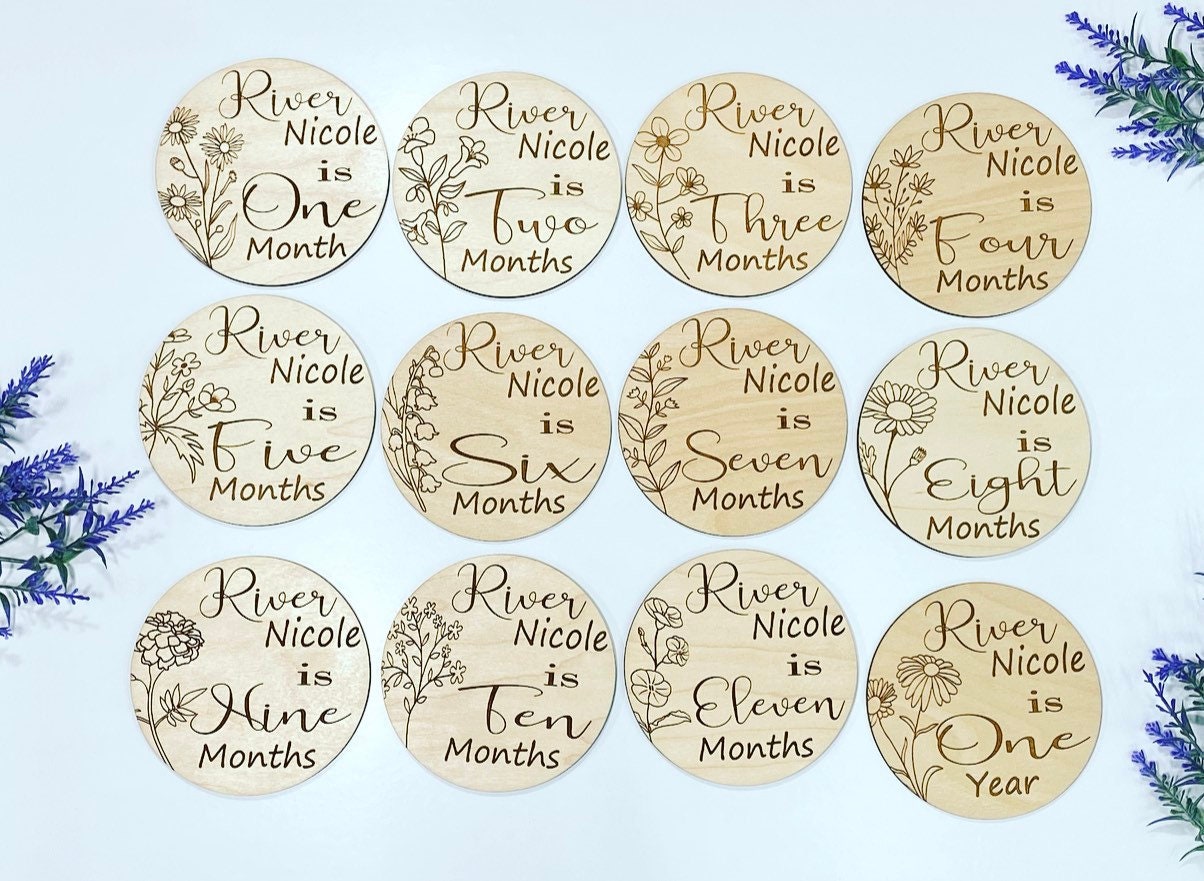 River
Nicole
is
One
Month
River
Nicole
is
Two
Months
River
Nicole
is
Three
Months
River
Nicole
is
Four
Months
River
Nicole
is
Five
Months
River
Nicole
is
Six
Months
River
Nicole
is
Seven
Months
River
Nicole
is
Eight
Months
River
Nicole
is
Nine
Months
River
Nicole
is
Ten
Months
River
Nicole
is
Eleven
Months
River
Nicole
is
One
Year